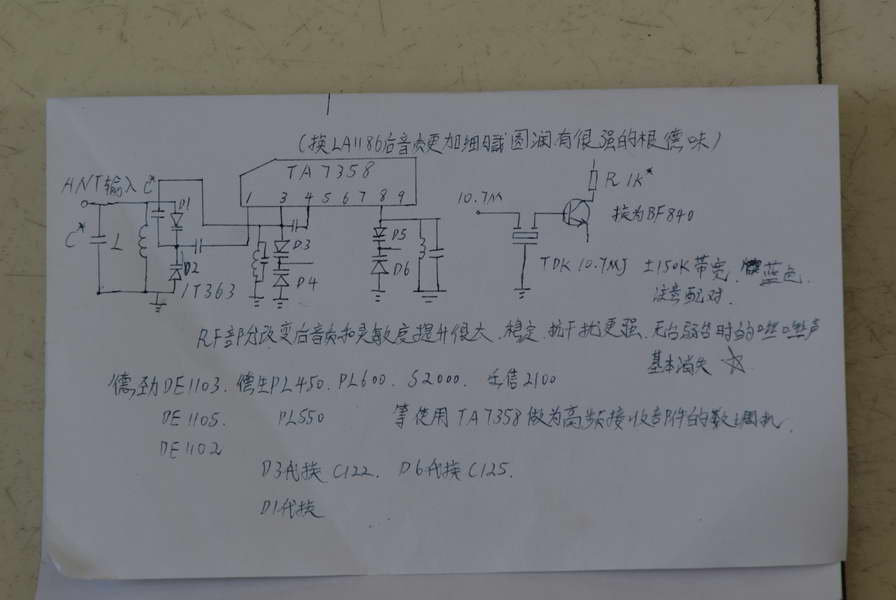 (换LA1186后音质更加细腻圆润有很强的根德味)
TA7358
1 3 4 5 6 7 8 9
ANT输入 C*
D1
C* L
D2
1T363
D3
D4
D5
D6
10.7M
R 1K*
换为BF840
TDK 10.7MJ ±150K带宽. 蓝色.
注意配对.
RF部分改变后音质和灵敏度提升很大、稳定、抗干扰更强、无台弱台时的噪噪声
基本消失 ☆
德劲DE1103. 德生PL450. PL600. S2000. 乐信2100
DE1105. PL550 等使用TA7358做为高频接收部件的数调机.
DE1102
D3代换C122. D6代换C125.
D1代换